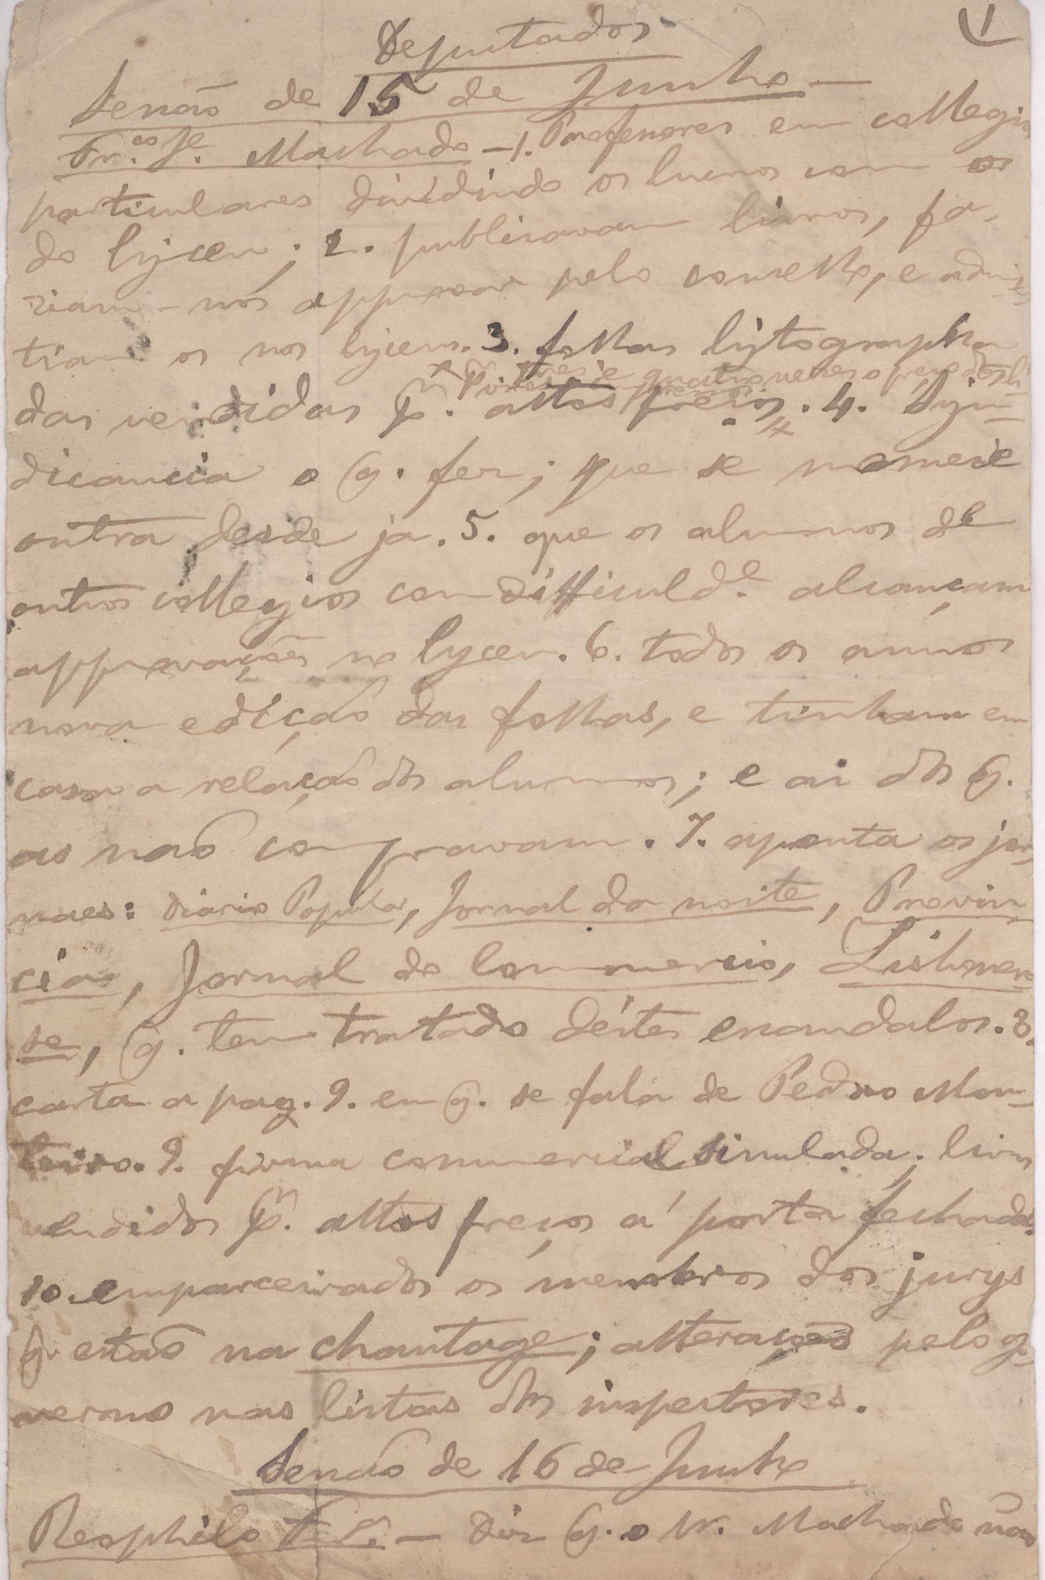 1
Deputados
Sessão de 15 de Junho —
Fr.co J.e Machado — 1. Professores em collegios
particulares dividindo os lucros com os
do lyceu; 2. publicavam livros, fa-
ziam-nos approvar pelo conselho, e admit-
tiam os nos lyceus. 3. folhas lytographa-
x Por tres e quatro vezes o preço dos li-
das vendidas p.r altos preços x. 4. Syn-
dicancia o q. fez; que se nomeie
outra desde ja. 5. que os alumnos de
outros collegios com difficuld.e alcançam
approvações no lyceu. 6. todos os annos
nova edição das folhas, e tinham em
casa a relação dos alumnos; e ai dos q.
as não compravam. 7. aponta os jor-
naes: Diario Popular, Jornal da noite, Provin-
cia, Jornal do Commercio, Lisbonen-
se, q. tem tratado dêstes escandalos. 8.
carta a pag. 9. em q. se fala de Pedro Mon-
teiro. 9. firma commercial simulada; livros
vendidos p.r altos preços á porta fechada.
10. emparceirados os membros dos jurys
q. estão na chantage; alterações pelo go-
verno nas listas dos inspectores.
Sessão de 16 de Junho
— Diz q. o sr. Machado não